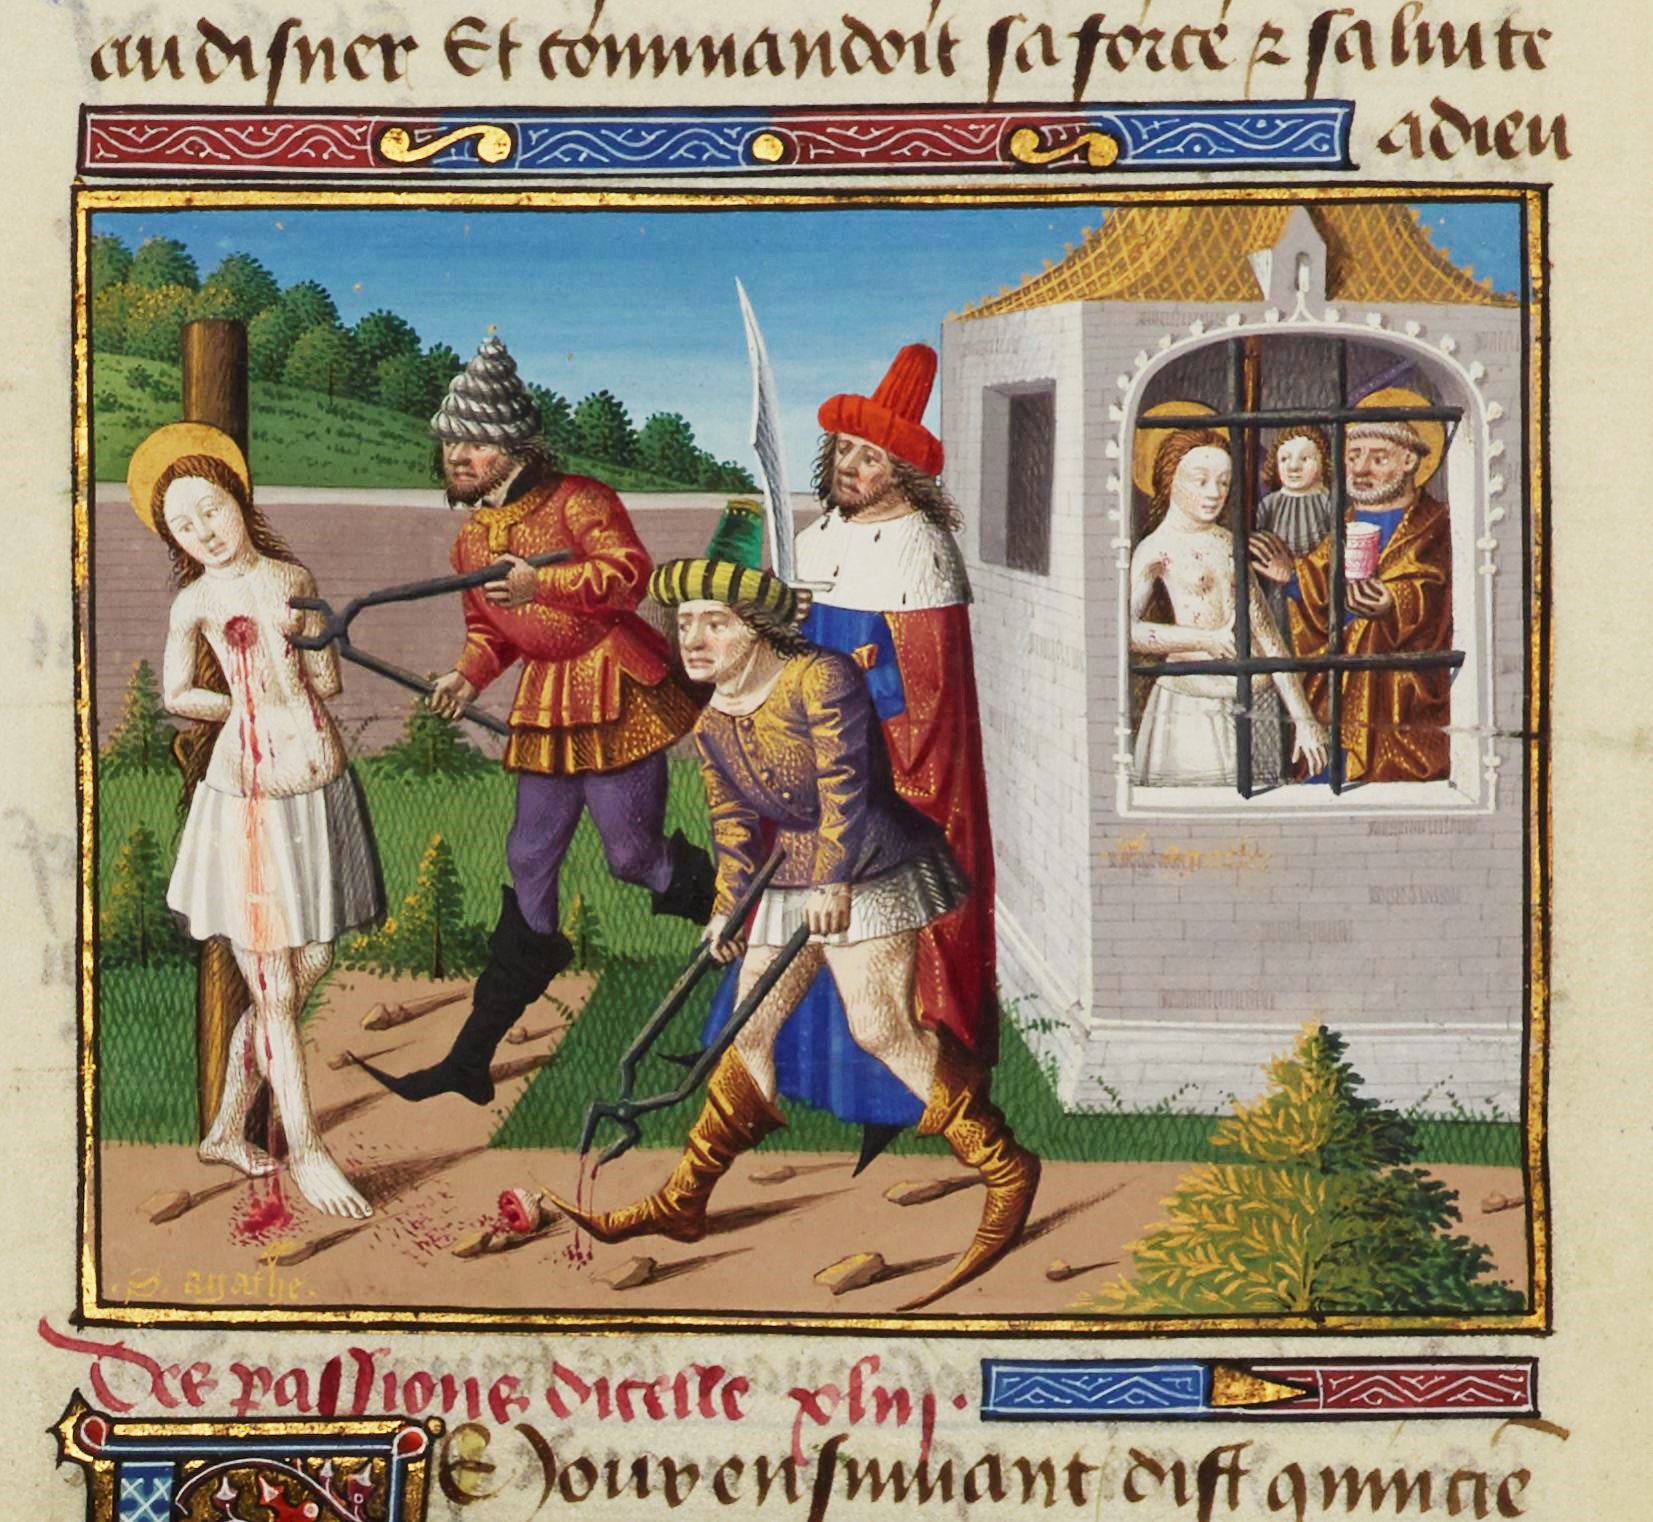 au disner Et commandoit sa force ⁊ sa luite
a dieu
.S. agathe.
Des passions dicelle xliij.
Le Jour ensuiuant dist quincie